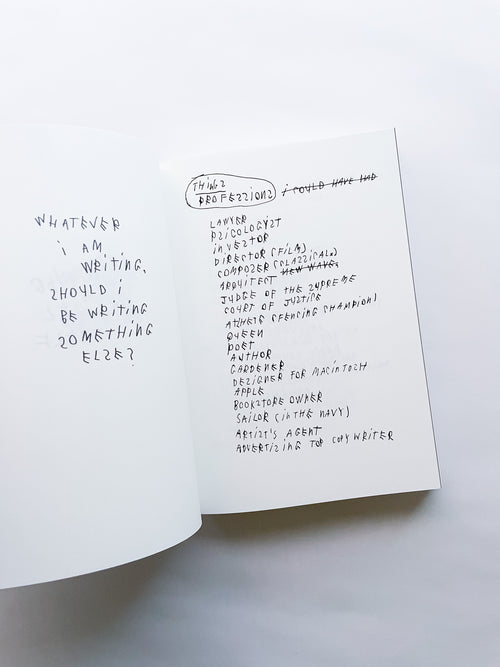 WHATEVER
i AM
WRiTiNG,
SHOULD i
BE WRiTiNG
SOMETHiNG
ELSE?
THiNGS
PROFESSiONS i COULD HAVE HAD
LAWYER
PSICOLOGYST
iNVESTOR
DiRECTOR (FiLM)
COMPOSER (CLASSiCAL)
ARQUiTECT NEW WAVE
JUDGE OF THE SUPREME
COURT OF JUSTiCE
ATHLETE (FENCiNG CHAMPiON)
QUEEN
POET
AUTHOR
GARDENER
DESiGNER FOR MACiNTOSH
APPLE
BOOKSTORE OWNER
SAiLOR (iN THE NAVY)
ARTiST'S AGENT
ADVERTiSiNG TOP COPYWRiTER